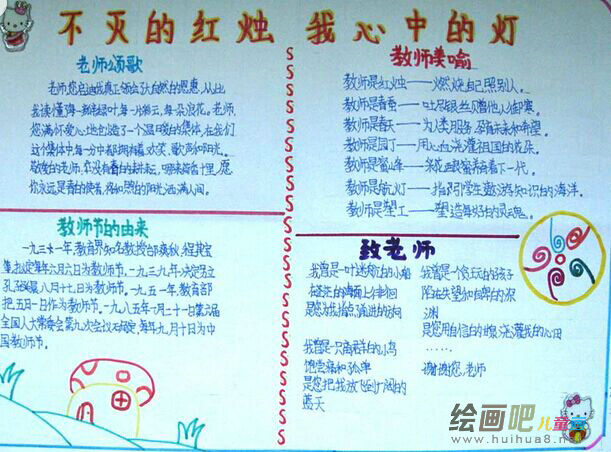 不灭的红烛 我心中的灯
老师颂歌
老师,您启迪我真正领会了大自然的恩惠,从此
我读懂了每一瓣绿叶,每一片彩云,每一朵浪花。老师,
您满怀爱心地创造了一个温暖的集体,在我们
这个集体中每一分中都拥有着欢笑、歌声和阳光。
敬爱的老师,
你永远是春的使者,
教师节的由来
一九三一年,教育界知名教授邰爽秋、程其宝
等,拟定每年六月六日为教师节。一九三九年,决定另立
孔子诞辰八月廿七日为教师节。一九五一年,教育部
把五月一日作为教师节。一九八五年一月二十一日第六届
全国人大常委会第九次会议决定,每年九月十日为中
国教师节。
教师美喻
教师是红烛——燃烧自己照别人。
教师是春蚕——吐尽银丝只赠他人御寒。
教师是春天——为人类服务,孕育未来和希望。
教师是园丁——用心血浇灌祖国的花朵。
教师是蜜蜂——采花酿蜜养育着下一代。
教师是航灯——指引学生遨游知识的海洋。
教师是塑工——塑造每
致老师
我曾是一叶迷航的小船
在茫茫的海面上徘徊
是您为我指点通途的方向
我曾是一只离群的小鸟
饱尝痛和孤单
是您把我放飞到广阔的
蓝天
我曾是个贪玩的孩子
陷在失望和自卑的深
渊
是您用自信的
浇灌我的心田
……
谢谢您,老师
绘画吧 儿童画
www.huihua8.n